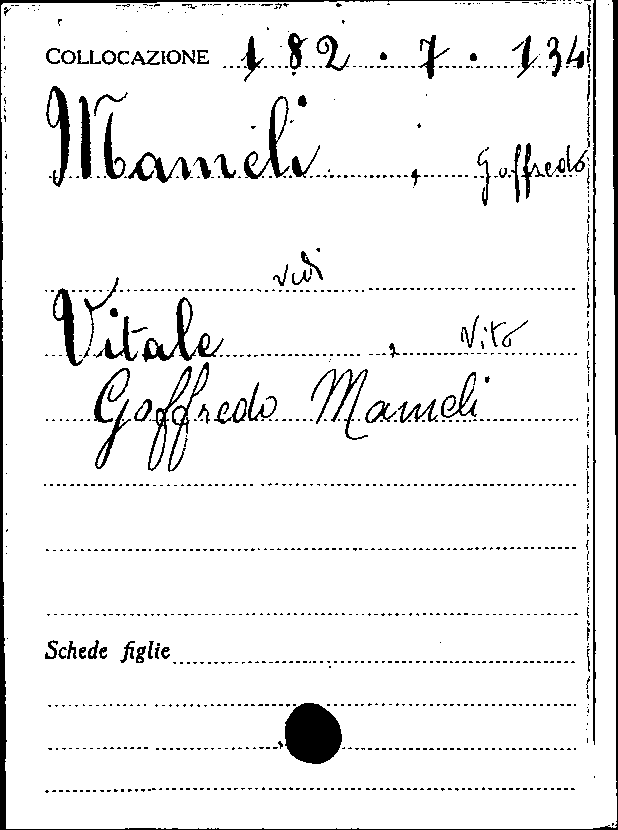 COLLOCAZIONE 182.7.134
Mameli, Goffredo
vidi
Vitale, Vito
Goffredo Mameli
Schede figlie